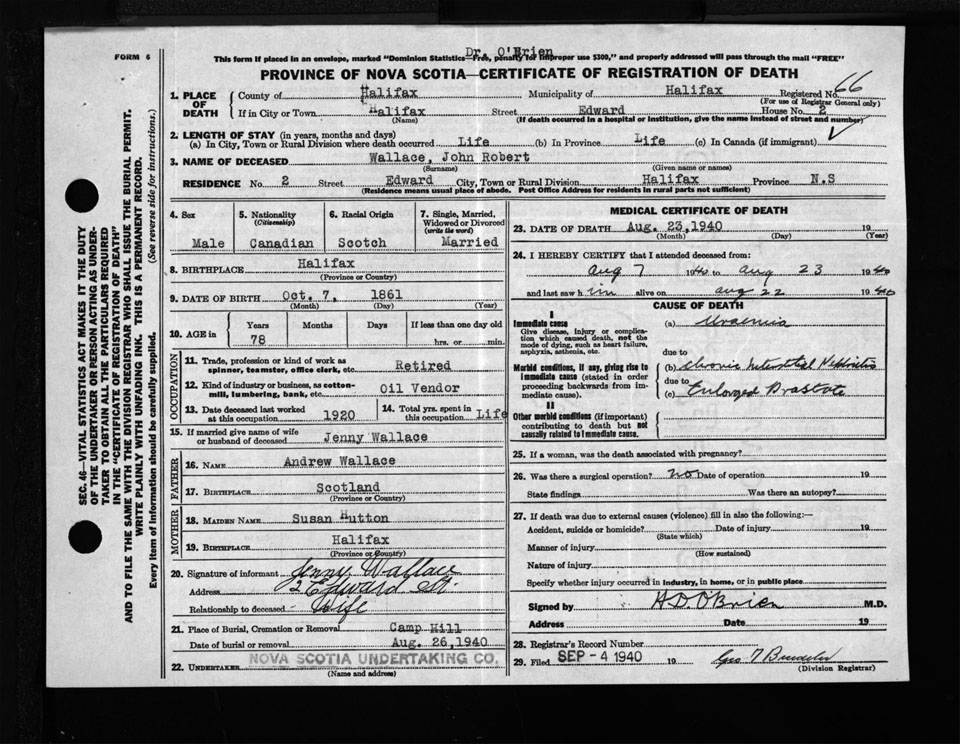 FORM 6
Dr. O'Brien
This form if placed in an envelope, marked "Dominion Statistics—Free, penalty for improper use $300," and properly addressed will pass through the mail "FREE"
PROVINCE OF NOVA SCOTIA—CERTIFICATE OF REGISTRATION OF DEATH
1. PLACE OF DEATH County of Halifax Municipality of Halifax Registered No. 66
(For use of Registrar General only)
If in City or Town Halifax Street Edward House No. 2
(Name) (If death occurred in a hospital or institution, give the name instead of street and number)
2. LENGTH OF STAY (in years, months and days)
(a) In City, Town or Rural Division where death occurred Life (b) In Province Life (c) In Canada (if immigrant)
3. NAME OF DECEASED Wallace, John Robert
(Surname) (Given name or names)
RESIDENCE No. 2 Street Edward City, Town or Rural Division Halifax Province N.S
(Residence means usual place of abode. Post Office Address for residents in rural parts not sufficient)
4. Sex 5. Nationality (Citizenship) 6. Racial Origin 7. Single, Married, Widowed or Divorced (write the word)
Male Canadian Scotch Married
8. BIRTHPLACE Halifax
(Province or Country)
9. DATE OF BIRTH Oct. 7, 1861
(Month) (Day) (Year)
10. AGE in Years Months Days If less than one day old
78 hrs. or min.
OCCUPATION
11. Trade, profession or kind of work as spinner, teamster, office clerk, etc. Retired
12. Kind of industry or business, as cotton-mill, lumbering, bank, etc. Oil Vendor
13. Date deceased last worked at this occupation 1920 14. Total yrs. spent in this occupation Life
15. If married give name of wife or husband of deceased Jenny Wallace
FATHER
16. NAME Andrew Wallace
17. BIRTHPLACE Scotland
(Province or Country)
MOTHER
18. MAIDEN NAME Susan Hutton
19. BIRTHPLACE Halifax
(Province or Country)
20. Signature of informant Jenny Wallace
Address 2 Edward St.
Relationship to deceased Wife
21. Place of Burial, Cremation or Removal Camp Hill
Date of burial or removal Aug. 26, 1940
22. UNDERTAKER NOVA SCOTIA UNDERTAKING CO.
(Name and address)
MEDICAL CERTIFICATE OF DEATH
23. DATE OF DEATH Aug. 23, 1940 19
(Month) (Day) (Year)
24. I HEREBY CERTIFY that I attended deceased from:
Aug 7 1940 to Aug 23 1940
and last saw him alive on Aug 22 1940
CAUSE OF DEATH
I
Immediate cause (a) Uraemia
Give disease, injury or complication which caused death, not the mode of dying, such as heart failure, asphyxia, asthenia, etc.
due to
Morbid conditions, if any, giving rise to immediate cause (stated in order proceeding backwards from immediate cause). (b) Chronic Interstitial Nephritis
due to
(c) Enlarged Prostate
II
Other morbid conditions (if important) contributing to death but not causally related to immediate cause.
25. If a woman, was the death associated with pregnancy?
26. Was there a surgical operation? no Date of operation 19
State findings Was there an autopsy?
27. If death was due to external causes (violence) fill in also the following:—
Accident, suicide or homicide? Date of injury 19
(State which)
Manner of injury
(How sustained)
Nature of injury
Specify whether injury occurred in industry, in home, or in public place
Signed by H.D. O'Brien M.D.
Address Date 19
28. Registrar's Record Number
29. Filed SEP - 4 1940 19
(Division Registrar)
SEC. 46—VITAL STATISTICS ACT MAKES IT THE DUTY
OF THE UNDERTAKER OR PERSON ACTING AS UNDER-
TAKER TO OBTAIN ALL THE PARTICULARS REQUIRED
IN THE "CERTIFICATE OF REGISTRATION OF DEATH"
AND TO FILE THE SAME WITH THE DIVISION REGISTRAR WHO SHALL ISSUE THE BURIAL PERMIT.
WRITE PLAINLY WITH UNFADING INK. THIS IS A PERMANENT RECORD.
Every item of information should be carefully supplied. (See reverse side for instructions.)